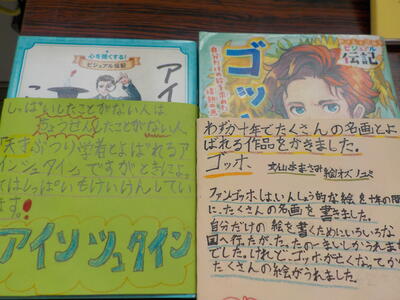 心を強くする!
ビジュアル伝記
アイ
しっぱいしたことがない人は
ちょうせんしたことがない人
「天才ぶつり学者とよばれるア
インシュタイン。ですがときによっ
てはしっぱいもけいけんしてい
ます。
アインシュタイン
ビジュアル
伝記
ゴッ
わずか十年でたくさんの名画とよ
ばれる作品をかきました。
ゴッホ
ファンゴッホは、いんしょう的な絵を十年の間
に、たくさんの名画を書きました。
自分だけの絵を書くためにいろいろな
国へ行たが、たったの一まいしかうれませ
でした。けれど、ゴッホが亡くなってか
たくさんの絵がうれました。